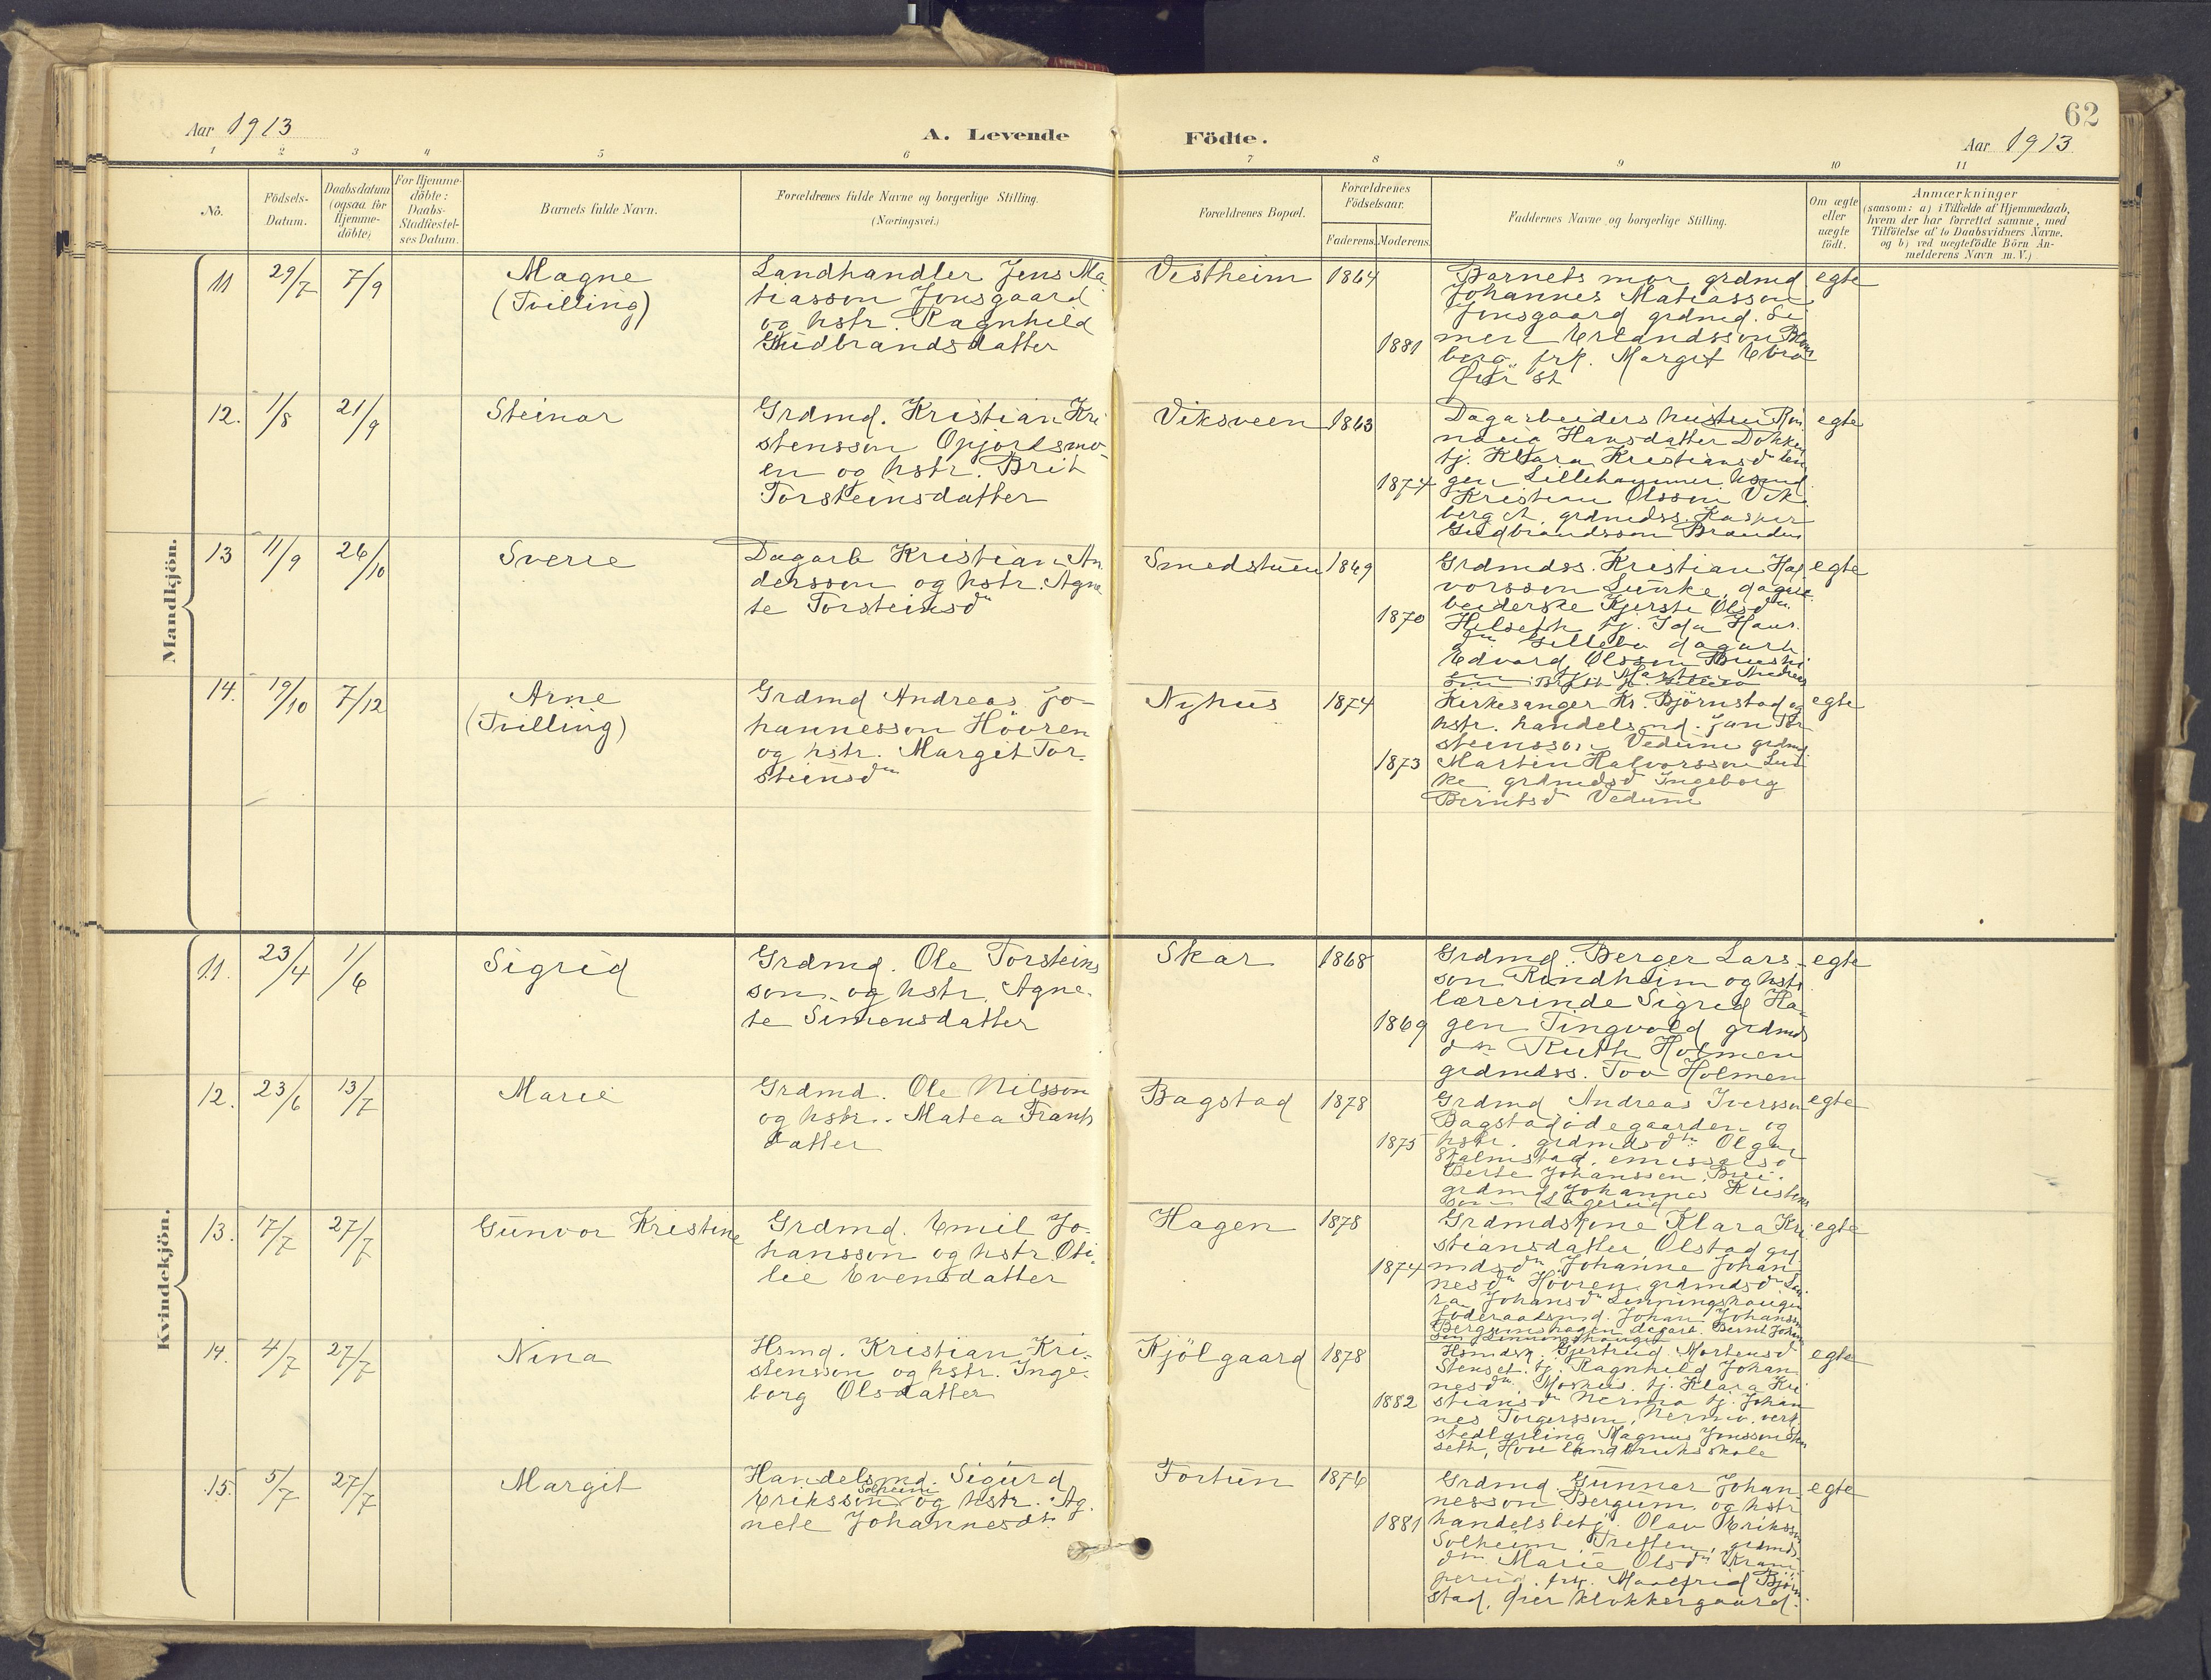 62
Aar 1913
A. Levende Födte.
Aar 1913
1 2 3 4 5 6 7 8 9 10 11
No.
Födsels-
Datum.
Daabsdatum
(ogsaa for
Hjemme-
döbte)
For Hjemme-
döbte:
Daabs-
Stadfæstel-
ses Datum.
Barnets fulde Navn.
Forældrenes fulde Navne og borgerlige Stilling.
(Næringsvei.)
Forældrenes Bopæl.
Forældrenes
Födselsaar.
Faderens. Moderens.
Faddernes Navne og borgerlige Stilling.
Om ægte
eller
uægte
födt.
Anmærkninger
(saasom: a) i Tilfælde af Hjemmedaab,
hvem der har forrettet samme, med
Tilföielse af to Daabsvidners Navne,
og b) ved uægtefödte Börn An-
melderens Navn m. V.)
Mandkjön.
11 29/7 7/9
Magne
(Tvilling)
Landhandler Jens Ma
tiasson Jonsgaard
og hstr. Ragnhild
Gudbrandsdatter
Vestheim 1864
1881
Barnets mor grdmd
Johannes Matiasson
Jonsgaard grdmd. Si
men Erlandsson
berg, frk. Margit
egte
12. 1/8 21/9
Steinar
Grdmd. Kristian Kri
stensson Opjordsmo-
en og hstr. Brit
Torsteinsdatter
Viksveen 1863
1874
Dagarbeiders hustru
Hansdatter Dokken
tj. Klara Kristiansd
gen Lillehammer,
Kristian Olsson Vik
berg grdmdss. Kasper
Gudbrandsson
egte
13 11/9 26/10
Sverre
Dagarb Kristian An
dersson og hstr. Agne
te Torsteinsdn
Smedstuen 1869
1870
Grdmdss. Kristian Hal
vorsson Lunke, dagar
beiderske Kjersti Olsdn
Hilseth tj. Ida Hans
dn Gillebo dagarb
Edvard Olsson
egte
14. 19/10 7/12
Arne
(Tvilling)
Grdmd Andreas Jo-
hannesson Hövren
og hstr. Margit Tor-
steinsdn
Nyhus 1874
1873
Kirkesanger Kr. Björnstad og
hstr. handelsmd. Jan Tor
steinsson Vedum grdmd.
Martin Halvorsson Lun
ke grdmdsd Ingeborg
Berntsd Vedum
egte
Kvindekjön.
11. 23/4 1/6
Sigrid
Grdmd. Ole Torsteins
son og hstr. Agne-
te Simensdatter
Skar 1868
1869
Grdmd. Berger Lars-
son Rindheim og hstr
lærerinde Sigrid Ha-
gen Tingvold grdmds
dn Ruth Holmen
grdmdss. Tov Holmen
egte
12. 23/6 13/7
Marie
Grdmd. Ole Nilsson
og hstr. Matea Frants
datter
Bagstad 1878
1875
Grdmd Andreas Iversson
Bagstadödegaarden og
hstr. grdmdsdn Olga
Stalmstad,
Berte Johanssen
grdmd Johannes Kristens
son
egte
13. 17/7 27/7
Gunvor Kristine
Grdmd. Emil Jo-
hansson og hstr. Oti-
lie Evensdatter
Hagen 1878
1874
Grdmdskone Klara Kri
stiansdatter Olstad gr
mdsdn Johanne Johan
nesdn Hövren, grdmdsdn
ra Johansdn Linningshaugen
föderaadsmd. Johan Johansson
Bergumshagen dagarb. Bernt Johan
son Linningshaugen
egte
14. 4/7 27/7
Nina
Hsmd. Kristian Kri-
stensson og hstr. Inge-
borg Olsdatter
Kjölgaard 1878
1882
Hsmdsk. Gjertrud Mortensd
Stenset. tj. Ragnhild Johan
nesdn. Moshus. tj. Klara Kri
stiansdn Nermo tj. Johan
nes Torgersson, Nermo, verk
stedlærling Magnus Jonsson
seth, Hove landbruksskole
egte
15. 5/7 27/7
Margit
Handelsmd. Sigurd
Eriksson Solheim og hstr. Ag-
nete Johannesdt.
Fortun 1876
1881
Grdmd. Gunnar Johan
nesson Bergum og hstr
handelsbetj. Olav Eriksson
Solheim, Tretten, grdmds-
dn Marie Olsdn Kram
perud. frk. Maalfrid Björn
stad, Öier klokkergaard.
egte